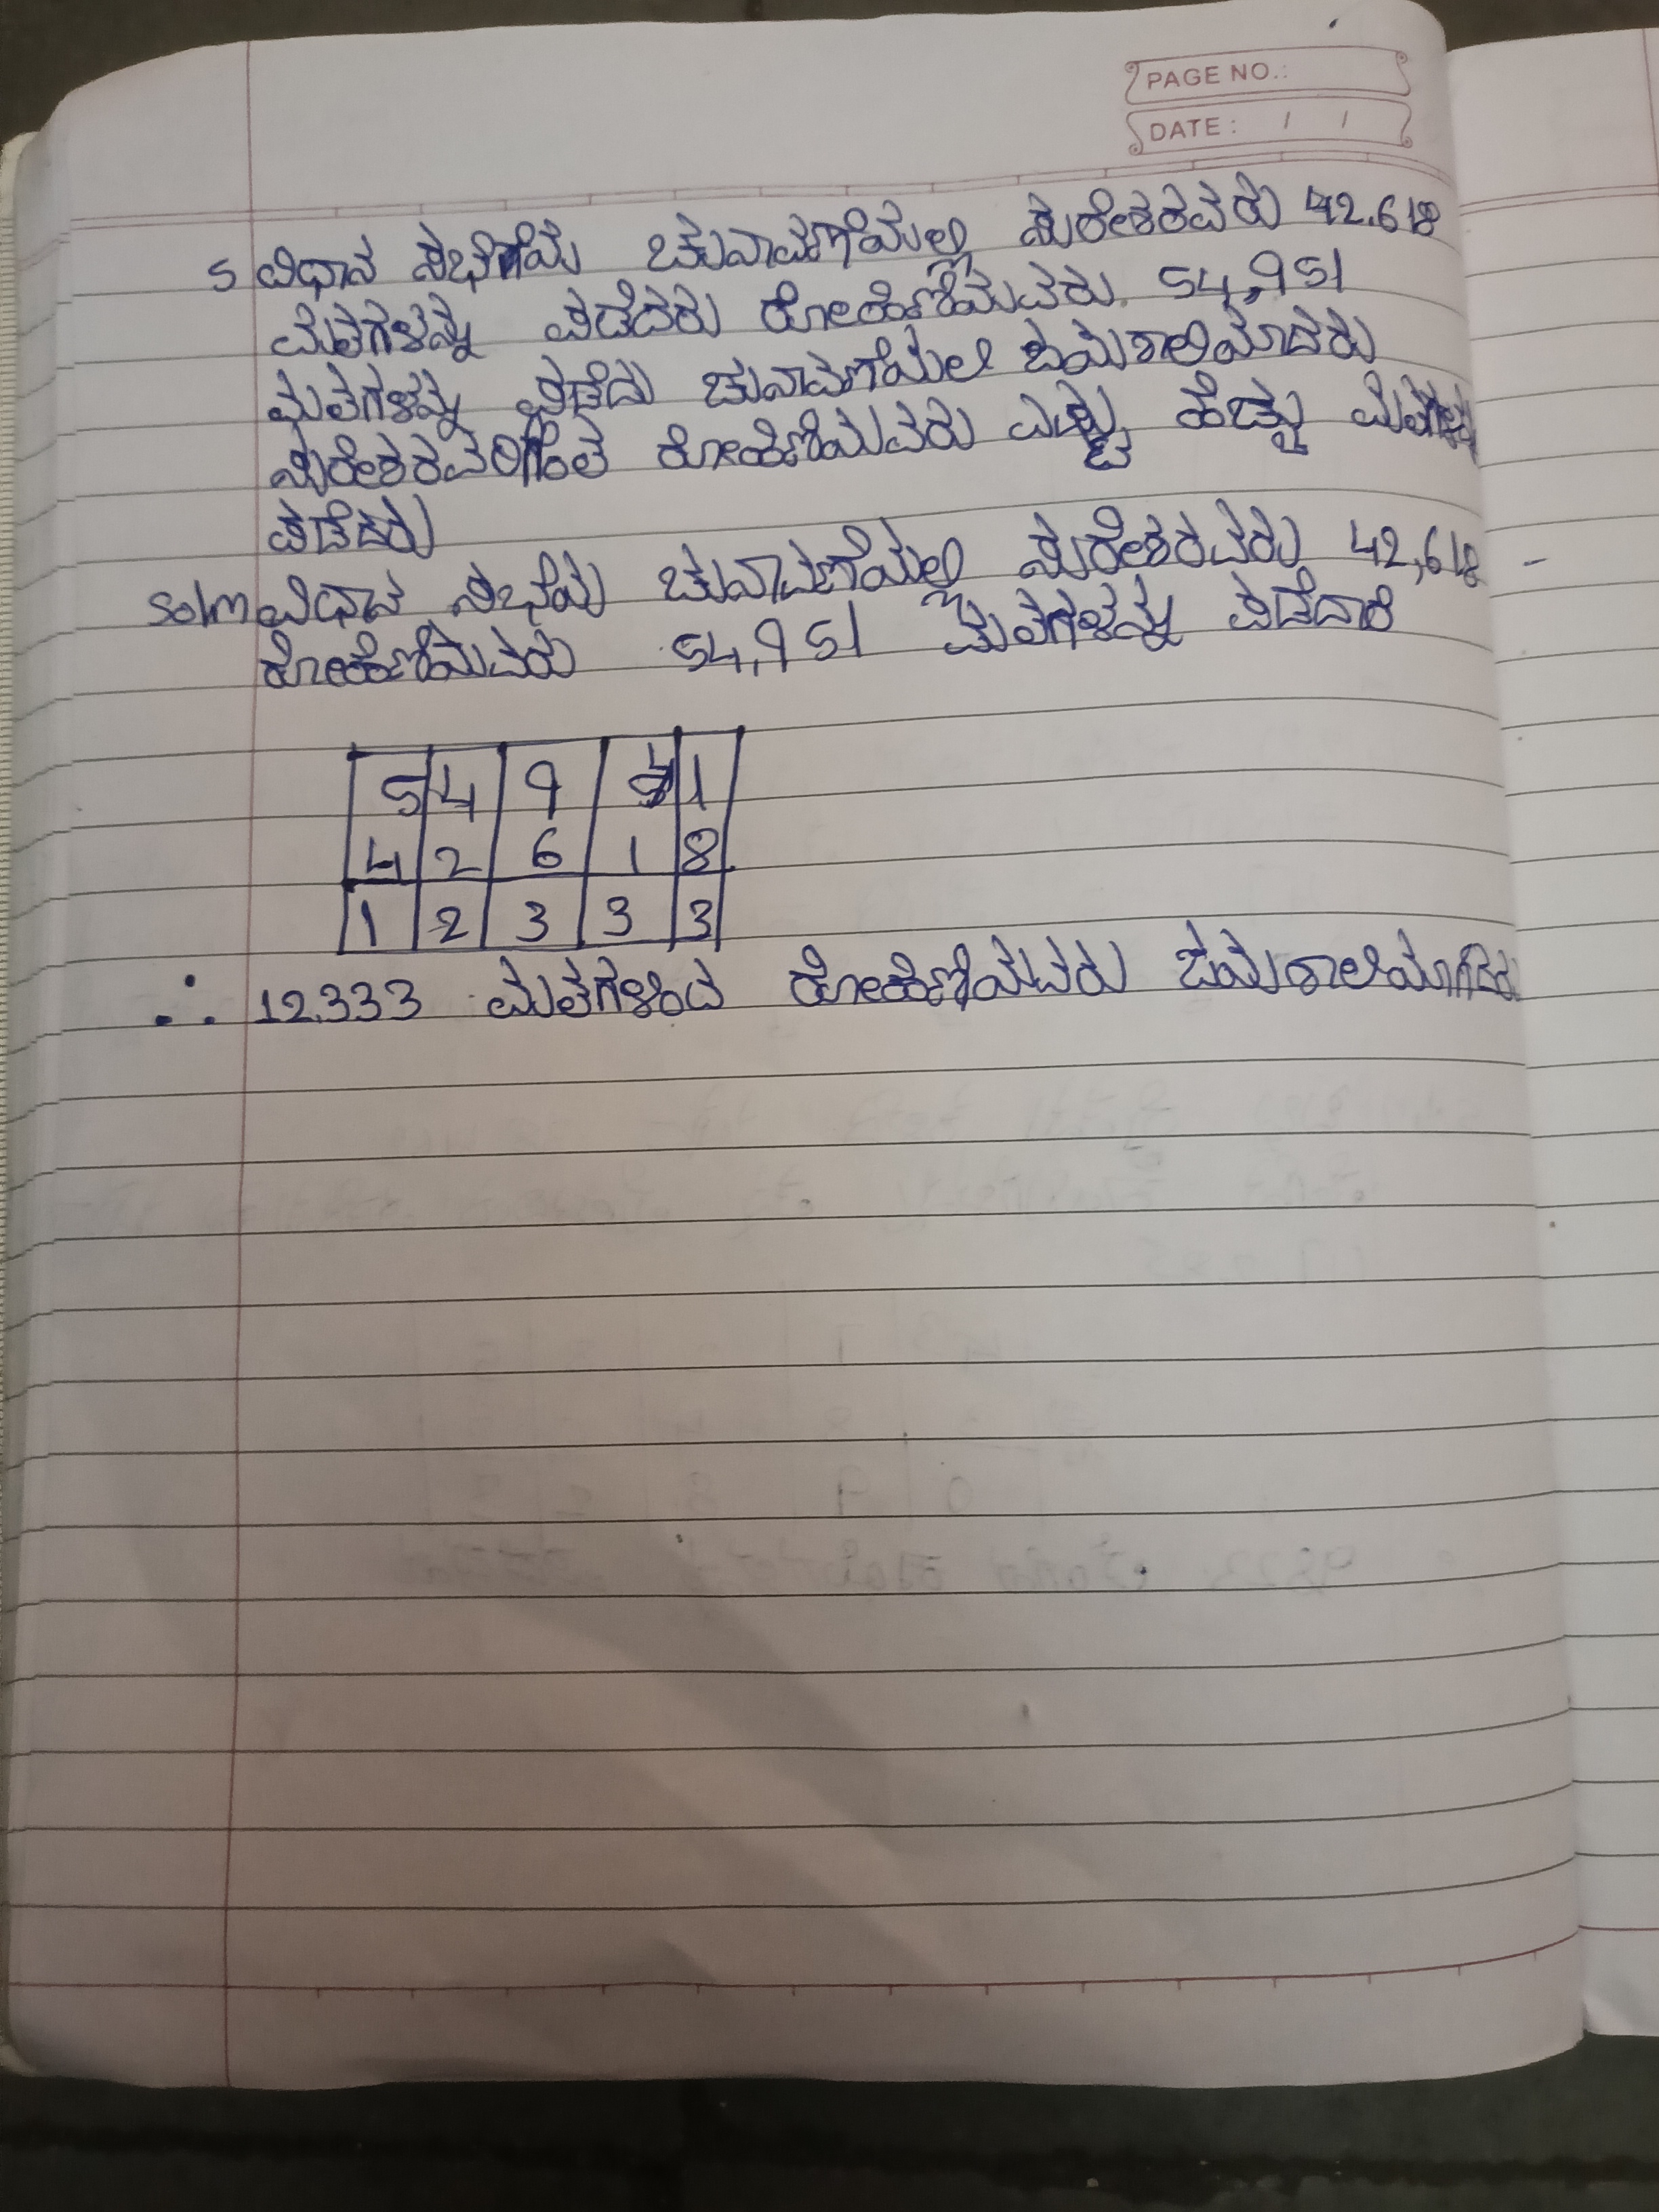 PAGE NO.:
DATE : / /
5 ವಿಧಾನ ಸಭೆಗೆಯ ಚುನಾವಣೆಯಲ್ಲಿ ಸುರೇಶರವರು 42.618
ಮತಗಳನ್ನು ಪಡೆದರು ರೋಹಿಣಿಯವರು. 54,951
ಮತಗಳನ್ನು ಪಡೆದು ಚುನಾವಣೆಯಲಿ ಜಯಶಾಲಿಯಾದರು
ಸುರೇಶರವರಿಗಿಂತ ರೋಹಿಣಿಯವರು ಎಷ್ಟು ಹೆಚ್ಚು
ಪಡೆದರು
Soln ವಿಧಾನ ಸಭೆಯ ಚುನಾವಣೆಯಲ್ಲಿ ಸುರೇಶರವರು 42,618 -
ರೋಹಿಣಿಯವರು 54,951 ಮತಗಳನ್ನು ಪಡೆದಾರೆ
5 4 9 4 1
4 2 6 1 8
1 2 3 3 3
∴ 12.333 ಮತಗಳಿಂದ ರೋಹಿಣಿಯವರು ಜಯಶಾಲಿಯಾಗಿದ್ದರು